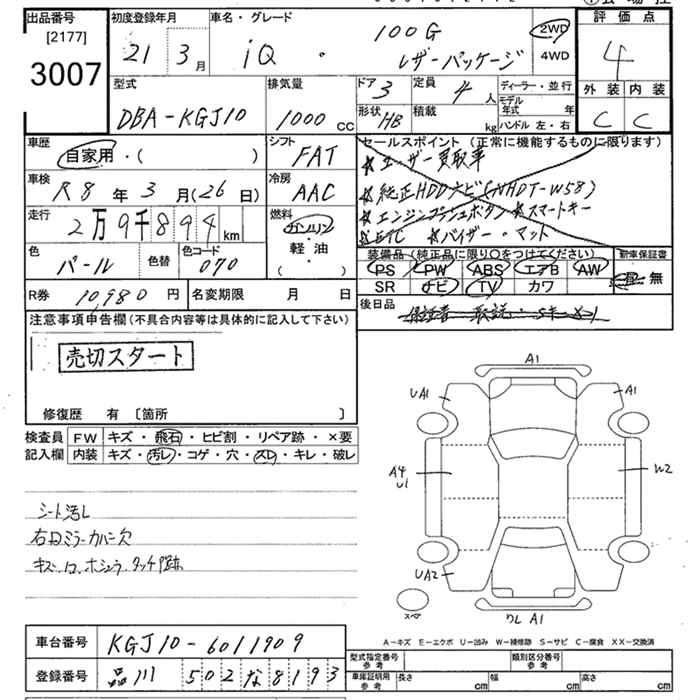 出品番号
[2177]
3007
初度登録年月
21 3月
車名・グレード
iQ ・ 100G
レザーパッケージ
2WD
4WD
評価点
4
外装 内装
C C
型式
DBA-KGJ10
排気量
1000 CC
ドア 3
形状 HB
定員 4 人
積載 kg
ディーラー・並行
モデル年式 年
ハンドル 左・右
車歴
自家用・( )
シフト
FAT
車検
R8年3月(26日)
冷房
AAC
走行
2万9千894 km
燃料
ガソリン
軽・油
( )
色
パール
色替
色コード
070
R券 10,980円
名変期限 月 日
セールスポイント(正常に機能するものに限ります)
★ユーザー買取車
★純正HDDナビ(NHDT-W58)
★エンジンプッシュボタン ★スマートキー
★ETC ★バイザー・マット
装備品(純正品に限り○をつけてください)
新車保証書
PS PW ABS エアB AW
SR ナビ TV カワ
有・無
後日品
保証書 取説・Sキーx1
注意事項申告欄(不具合内容等は具体的に記入して下さい)
売切スタート
修復歴 有〔箇所 〕
検査員記入欄
FW キズ・飛石・ヒビ割・リペア跡・×要
内装 キズ・汚レ・コゲ・穴・スレ・キレ・破レ
シート汚し
右Dミラーカバー欠
A1
UA1
A1
A4
U1
W2
UA2
スペア
A1
A-キズ E-エクボ U-凹み W-補修跡 S-サビ C-腐食 XX-交換済
車台番号
KGJ10-6011909
登録番号
品川 502 な 8193
型式指定番号
参考
類別区分番号
参考
車庫証明用
参考
長さ cm
幅 cm
高さ cm